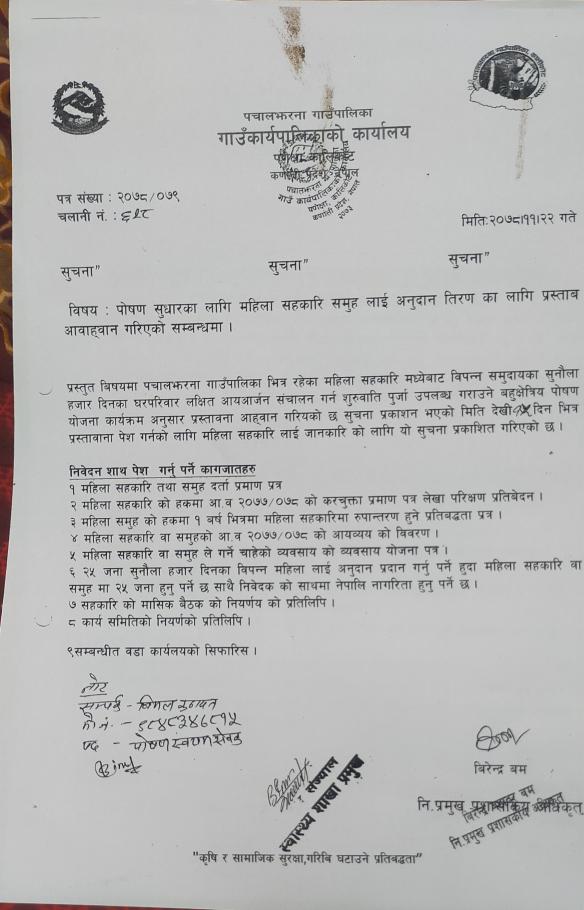 पचालझरना गाउँपालिका
गाउँकार्यपालिकाको कार्यालय
कर्णाली प्रदेश, नेपाल
पत्र संख्या : २०७८/०७९
चलानी नं. :
मिति:२०७८।११।२२ गते
सुचना" सुचना" सुचना"
विषय : पोषण सुधारका लागि महिला सहकारि समुह लाई अनुदान तिरण का लागि प्रस्ताब
आवाह्वान गरिएको सम्बन्धमा ।
प्रस्तुत बिषयमा पचालझरना गाउँपालिका भित्र रहेका महिला सहकारि मध्येबाट विपन्न समुदायका सुनौला
हजार दिनका घरपरिवार लक्षित आयआर्जन संचालन गर्न शुरुवाति पुर्जा उपलब्ध गराउने बहुक्षेत्रिय पोषण
योजना कार्यक्रम अनुसार प्रस्तावना आह्वान गरियको छ सुचना प्रकाशन भएको मिति देखी दिन भित्र
प्रस्तावाना पेश गर्नको लागि महिला सहकारि लाई जानकारि को लागि यो सुचना प्रकाशित गरिएको छ ।
निवेदन शाथ पेश गर्नु पर्ने कागजातहरु
१ महिला सहकारि तथा समुह दर्ता प्रमाण प्रत्र
२ महिला सहकारि को हकमा आ.व २०७७/०७८ को करचुक्ता प्रमाण पत्र लेखा परिक्षण प्रतिबेदन ।
३ महिला समुह को हकमा १ बर्ष भित्रमा महिला सहकारिमा रुपान्तरण हुने प्रतिबद्धता प्रत्र ।
४ महिला सहकारि वा समुहको आ.व २०७७/०७८ को आयव्यय को विवरण ।
५ महिला सहकारि वा समुह ले गर्ने चाहेको ब्यवसाय को ब्यवसाय योजना पत्र ।
६ २५ जना सुनौला हजार दिनका विपन्न महिला लाई अनुदान प्रदान गर्नु पर्ने हुदा महिला सहकारि वा
समुह मा २५ जना हुनु पर्ने छ साथै निवेदक को साथमा नेपालि नागरिता हुनु पर्ने छ ।
७ सहकारि को मासिक बैठक को नियर्णय को प्रतिलिपि ।
८ कार्य समितिको नियर्णको प्रतिलिपि ।
९सम्बन्धीत वडा कार्यलयको सिफारिस ।
नोट
सम्पर्क - विमल
मो.नं. - ९८४८३४६८१५
पद - पोषण स्वयम सेवक
स्वास्थ्य शाखा प्रमुख
बिरेन्द्र बम
नि.प्रमुख प्रशासकिय अधिकृत्
बिरेन्द्र बम
नि.प्रमुख प्रशासकीय अधिकृत
"कृषि र सामाजिक सुरक्षा,गरिबि घटाउने प्रतिबद्धता"